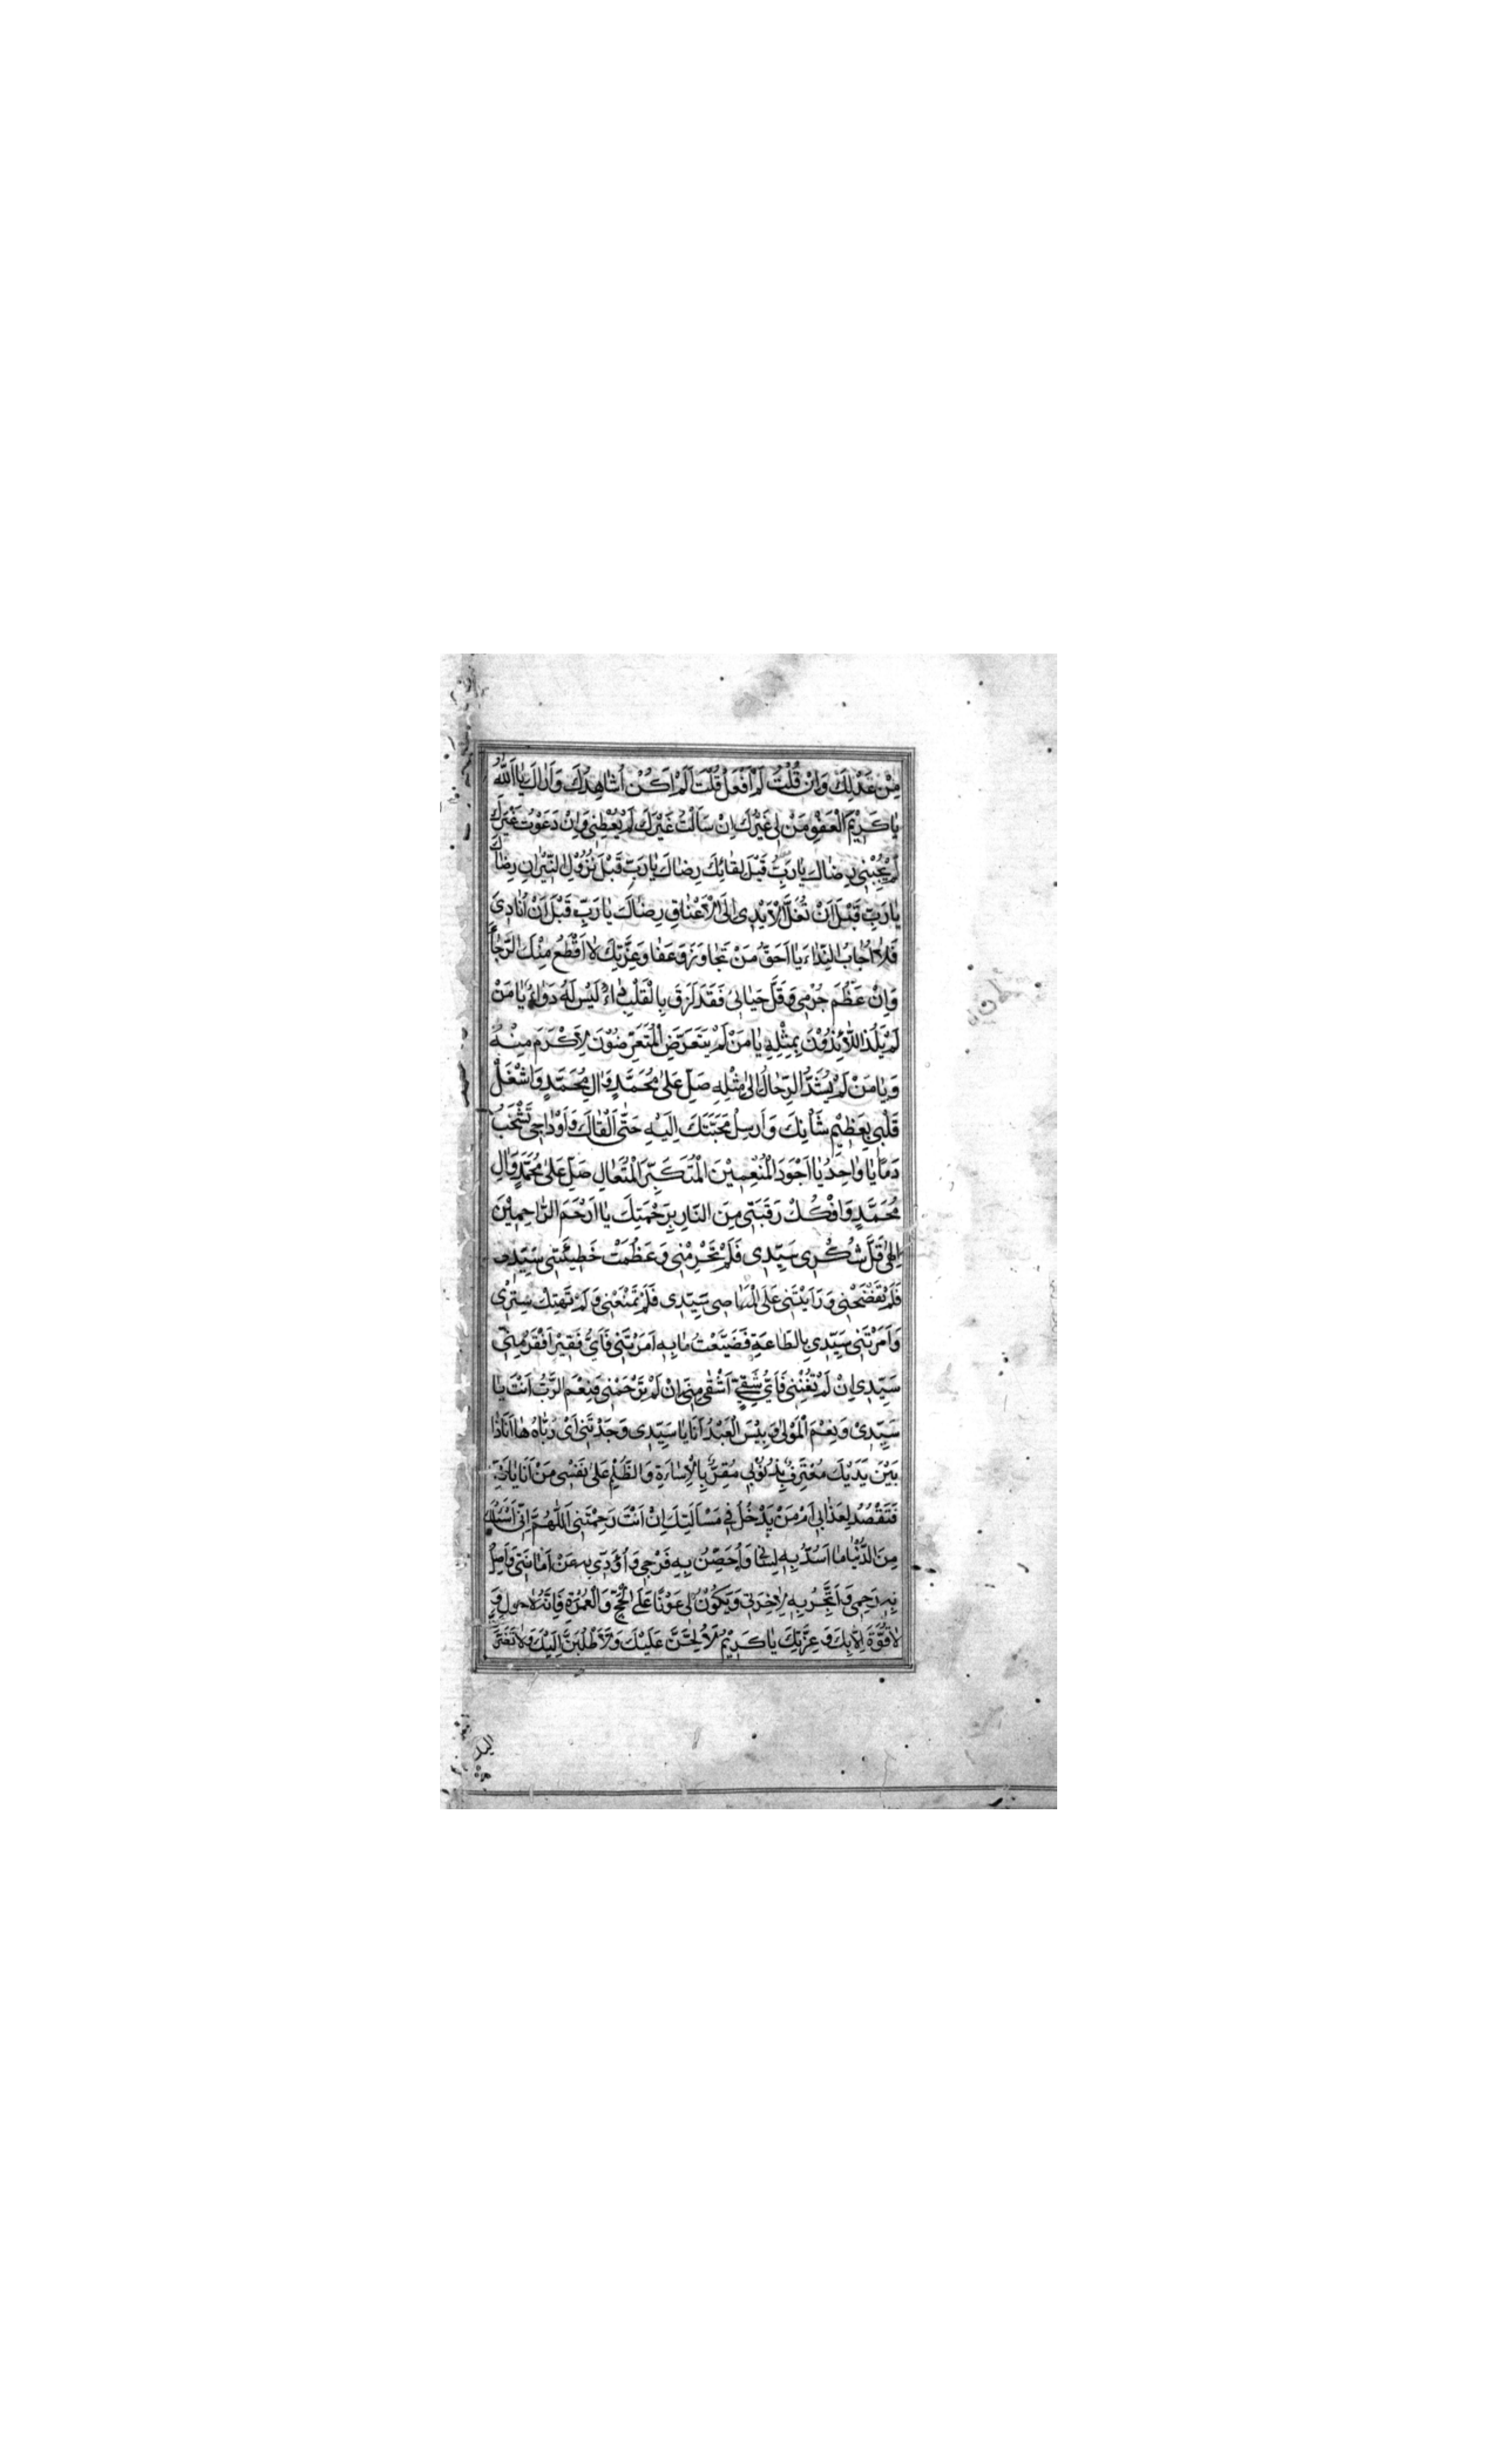 مِنْ عَدْلِكَ وَاِنْ قُلْتُ لَمْ اَفْعَلْ قُلْتَ اَلَمْ اَكُنْ اُشَاهِدُكَ وَاَرٰاكَ يٰا اَللّٰهُ
يٰا كَرِيْمَ الْعَفْوِ مَنْ لِى غَيْرُكَ اِنْ سَاَلْتُ غَيْرَكَ لَمْ يُعْطِنِى وَاِنْ دَعَوْتُ غَيْرَكَ
لَمْ يُجِبْنِى رِضٰاكَ يٰا رَبِّ قَبْلَ لِقٰائِكَ رِضٰاكَ يٰا رَبِّ قَبْلَ نُزُوْلِ النِّيْرٰانِ رِضٰاكَ
يٰا رَبِّ قَبْلَ اَنْ تُغَلَّ الْاَيْدِى اِلَى الْاَعْنٰاقِ رِضٰاكَ يٰا رَبِّ قَبْلَ اَنْ اُنٰادِىَ
فَلٰا اُجٰابُ النِّدٰاءَ يٰا اَحَقَّ مَنْ تَجٰاوَزَ وَعَفٰا وَعِزَّتِكَ لٰا اَقْطَعُ مِنْكَ الرَّجٰاءَ
وَاِنْ عَظُمَ جُرْمِى وَقَلَّ حَيٰائِى فَقَدْ لَزِقَ بِالْقَلْبِ دٰاءٌ لَيْسَ لَهُ دَوٰاءٌ يٰا مَنْ
لَمْ يَلُذِ اللّٰائِذُوْنَ بِمِثْلِهِ يٰا مَنْ لَمْ يَتَعَرَّضِ الْمُتَعَرِّضُوْنَ لِاَكْرَمَ مِنْهُ
وَيٰا مَنْ لَمْ يُشَدَّ الرِّحٰالُ اِلىٰ مِثْلِهِ صَلِّ عَلىٰ مُحَمَّدٍ وَاٰلِ مُحَمَّدٍ وَاشْغَلْ
قَلْبِى بِعَظِيْمِ شَاْنِكَ وَاَرْسِلْ مَحَبَّتَكَ اِلَيْهِ حَتّٰى اَلْقٰاكَ وَاَوْدٰاجِى تَشْخَبُ
دَمًا يٰا وٰاحِدُ يٰا اَجْوَدَ الْمُنْعِمِيْنَ الْمُتَكَبِّرَ الْمُتَعٰالِ صَلِّ عَلىٰ مُحَمَّدٍ وَاٰلِ
مُحَمَّدٍ وَافْكُكْ رَقَبَتِى مِنَ النّٰارِ بِرَحْمَتِكَ يٰا اَرْحَمَ الرّٰاحِمِيْنَ
اِلٰهِى قَلَّ شُكْرِى سَيِّدِى فَلَمْ تَحْرِمْنِى وَعَظُمَتْ خَطِيْئَتِى سَيِّدِى
فَلَمْ تَفْضَحْنِى وَرَاَيْتَنِى عَلَى الْمَعٰاصِى سَيِّدِى فَلَمْ تَمْنَعْنِى وَلَمْ تَهْتِكْ سِتْرِى
وَاَمَرْتَنِى سَيِّدِى بِالطّٰاعَةِ فَضَيَّعْتُ مٰا بِهِ اَمَرْتَنِى فَاَىُّ فَقِيْرٍ اَفْقَرُ مِنِّى
سَيِّدِى اِنْ لَمْ تُغْنِنِى فَاَىُّ شَقِىٍّ اَشْقٰى مِنِّى اِنْ لَمْ تَرْحَمْنِى فَنِعْمَ الرَّبُّ اَنْتَ يٰا
سَيِّدِى وَنِعْمَ الْمَوْلىٰ وَبِئْسَ الْعَبْدُ اَنَا يٰا سَيِّدِى وَجَدْتَنِى اَىْ رَبّٰاهُ هٰا اَنَا ذٰا
بَيْنَ يَدَيْكَ مُعْتَرِفٌ بِذُنُوْبِى مُقِرٌّ بِالْاِسٰاءَةِ وَالظُّلْمِ عَلىٰ نَفْسِى مَنْ اَنَا يٰا رَبِّ
فَتَقْصُدَ لِعَذٰابِى اَمْ مَنْ يَدْخُلُ فِى مَسْاَلَتِكَ اِنْ اَنْتَ رَحِمْتَنِى اَللّٰهُمَّ اِنِّى اَسْئَلُكَ
مِنَ الدُّنْيٰا مٰا اَسُدُّ بِهِ لِسٰانِى وَاُحَصِّنُ بِهِ فَرْجِى وَاُؤَدِّى بِهِ عَنْ اَمٰانَتِى وَاَصِلُ
بِهِ رَحِمِى وَاَتَّجِرُ بِهِ لِاٰخِرَتِى وَيَكُوْنُ لِى عَوْنًا عَلَى الْحَجِّ وَالْعُمْرَةِ فَاِنَّهُ لٰا حَوْلَ وَ
لٰا قُوَّةَ اِلّٰا بِكَ وَعِزَّتِكَ يٰا كَرِيْمُ لَاُلِحَّنَّ عَلَيْكَ وَلَاَطْلُبَنَّ اِلَيْكَ وَلَاَتَضَرَّعَنَّ
اليك